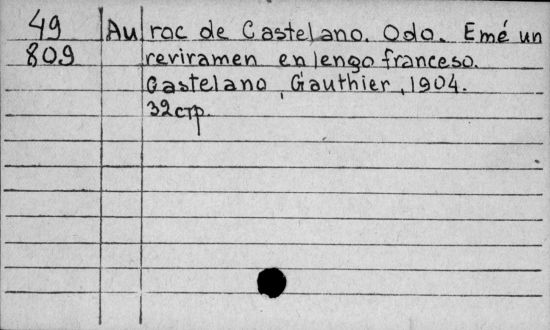 49 Au roc de Castelano. Odo. Emé un
809 reviramen en lengo franceso.
Castelano, Gauthier, 1904.
32 стр.